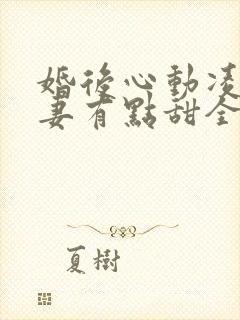 婚後心動凌
妻有點甜全
夏樹